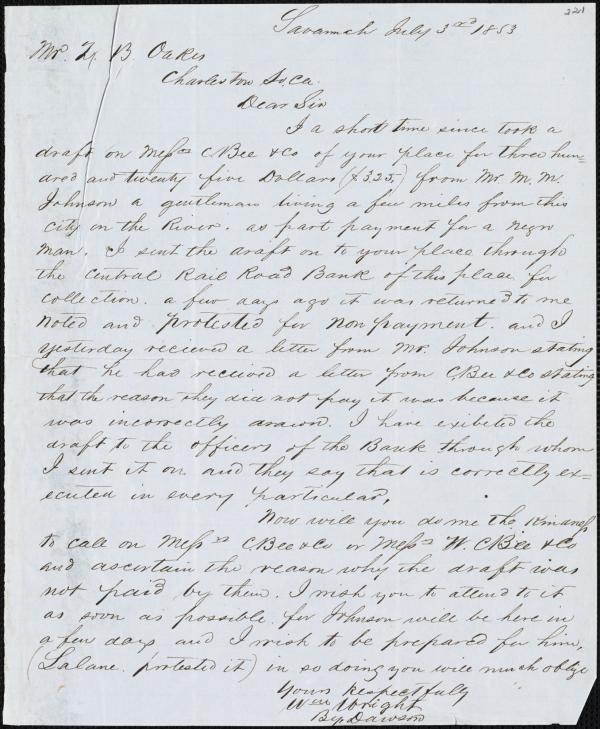 221
Savannah July 3rd 1853
Mr. Z. B. Oakes
Charleston So Ca.
Dear Sir
I a short time since took a
draft on Messrs C Bee & Co of your place for three hun=
dred and twenty five Dollars ($325) from Mr. M. M.
Johnson a gentleman living a few miles from this
city on the River. as part payment for a negro
man. I sent the draft on to your place through
the Central Rail Road Bank of this place for
collection. a few days ago it was returned to me
noted and protested for non payment. and I
yesterday recieved a letter from Mr. Johnson stating
that he had received a letter from C Bee & Co stating
that the reason they did not pay it was because it
was incorrectly drawn. I have exibited the
draft to the officers of the Bank through whom
I sent it on and they say that is correctly ex=
ecuted in every particular,
Now will you do me the kindness
to call on Messrs C Bee & Co or Messrs W. C Bee & Co
and ascertain the reason why the draft was
not paid by them. I wish you to attend to it
as soon as possible for Johnson will be here in
a few days and I wish to be prepared for him,
(Lalane. protested it) in so doing you will much oblige
Yours Respectfully
Wm Wright
By Dawson